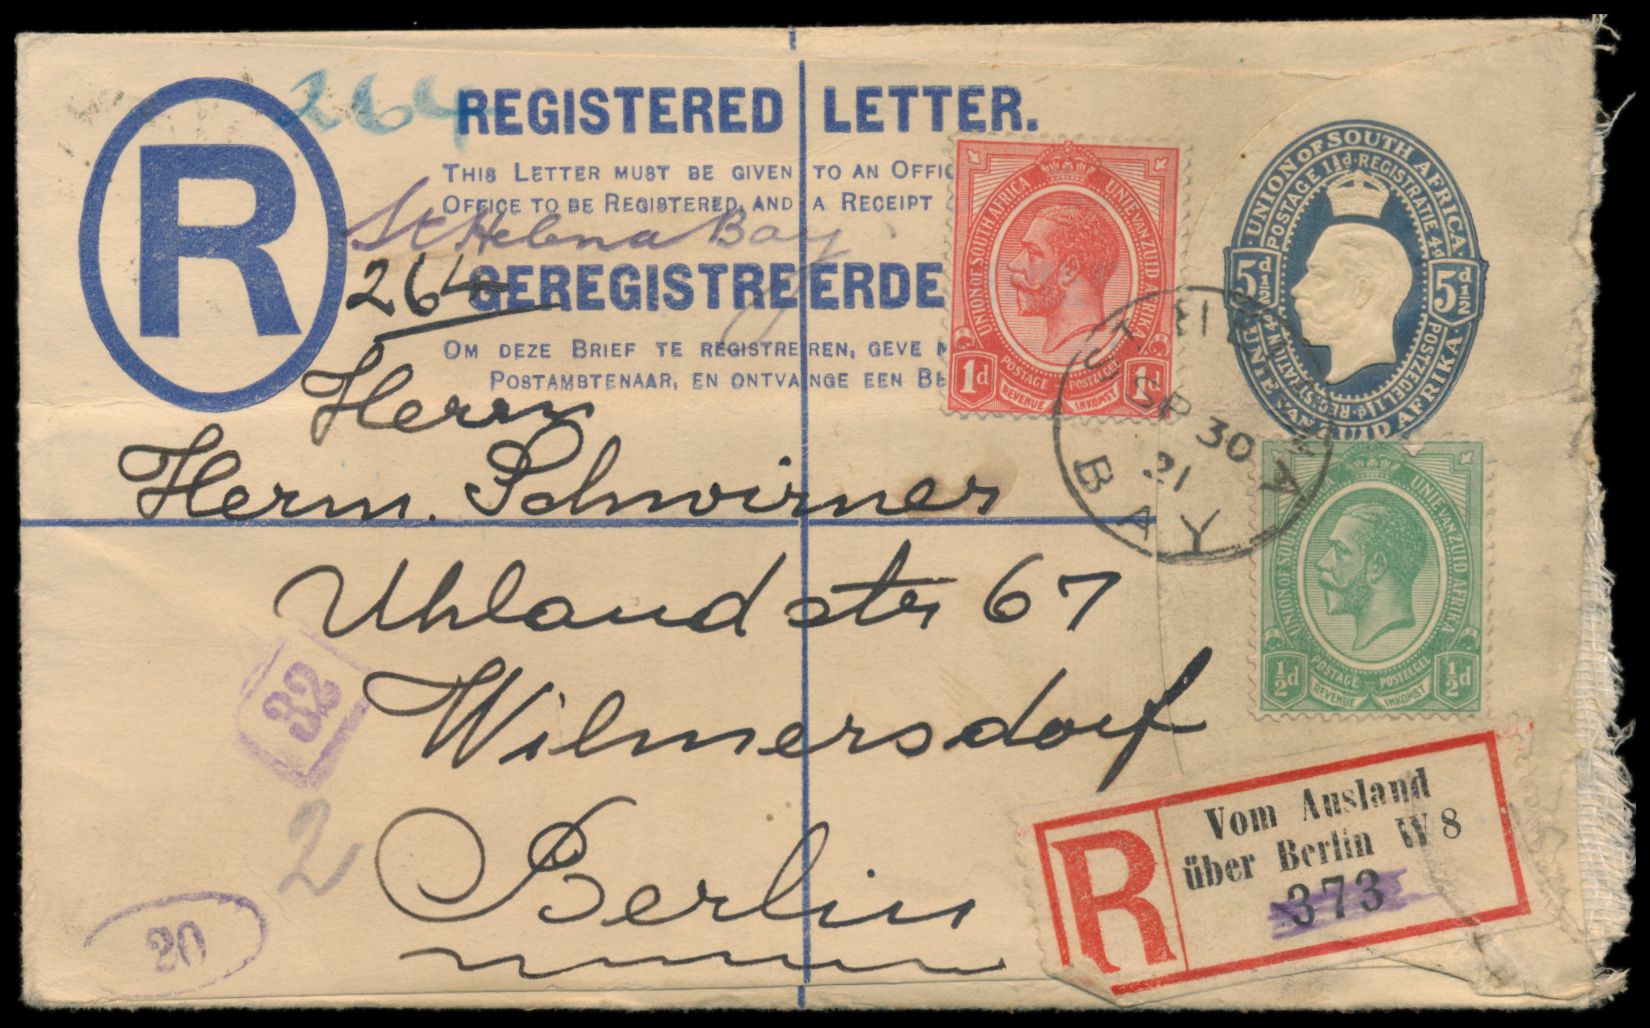 264
REGISTERED LETTER.
THIS LETTER MUST BE GIVEN TO AN OFFIC
OFFICE TO BE REGISTERED, AND A RECEIPT
St Helena Bay
264
GEREGISTREERDE
OM DEZE BRIEF TE REGISTREREN, GEVE M
POSTAMBTENAAR, EN ONTVANGE EEN BE
R
UNION OF SOUTH AFRICA
POSTAGE 1½d·REGISTRATIE 4d
5½d 5½d
POSTZEGEL 1½d·REGISTRATION 4d
UNIE VAN ZUID AFRIKA
UNION OF SOUTH AFRICA UNIE VAN ZUID AFRIKA
1d POSTAGE POSTZEGEL 1d
REVENUE INKOMST
ST HELENA BAY
SP 30
21
UNION OF SOUTH AFRICA UNIE VAN ZUID AFRIKA
½d POSTAGE POSTZEGEL ½d
REVENUE INKOMST
Herrn
Herm. Schwirner
Uhlandstr 67
Wilmersdorf
Berlin
32
2
20
R
Vom Ausland
über Berlin W 8
373